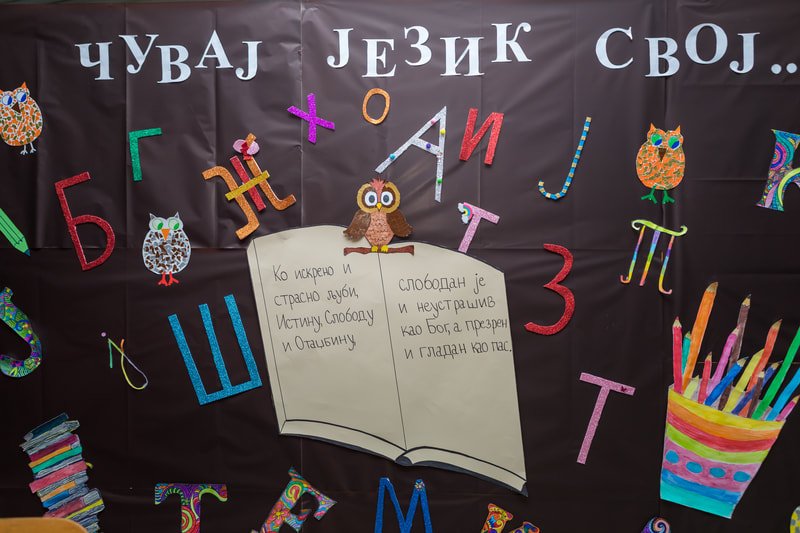 ЧУВАЈ ЈЕЗИК СВОЈ..
Ко искрено и
страсно љуби,
Истину, Слободу
и Отаџбину,
слободан је
и неустрашив
као Бог, а презрен
и гладан као пас.
Х О
Г А И Ј
Б Ж Т П
З
Ш Т
Т М